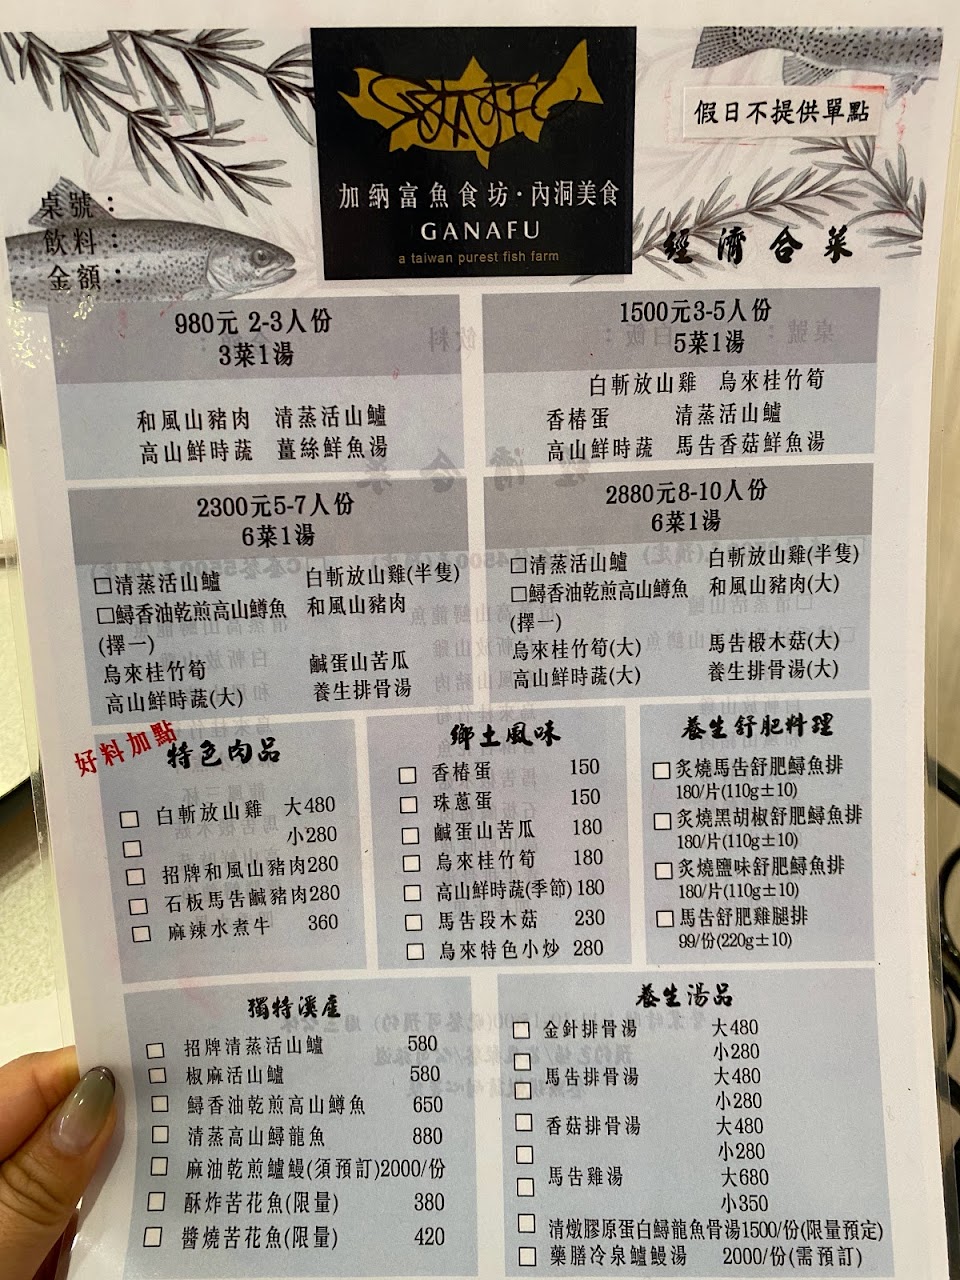 假日不提供單點
加納富魚食坊·內洞美食
GANAFU
a taiwan purest fish farm
桌號：
飲料：
金額：
經濟合菜
980元 2-3人份
3菜1湯
和風山豬肉 清蒸活山鱸
高山鮮時蔬 薑絲鮮魚湯
1500元3-5人份
5菜1湯
白斬放山雞 烏來桂竹筍
香椿蛋 清蒸活山鱸
高山鮮時蔬 馬告香菇鮮魚湯
2300元5-7人份
6菜1湯
□清蒸活山鱸 白斬放山雞(半隻)
□鱘香油乾煎高山鱒魚 和風山豬肉
(擇一)
烏來桂竹筍 鹹蛋山苦瓜
高山鮮時蔬(大) 養生排骨湯
2880元8-10人份
6菜1湯
□清蒸活山鱸 白斬放山雞(半隻)
□鱘香油乾煎高山鱒魚 和風山豬肉(大)
(擇一)
烏來桂竹筍(大) 馬告椴木菇(大)
高山鮮時蔬(大) 養生排骨湯(大)
好料加點
特色肉品
□ 白斬放山雞 大480
□ 小280
□ 招牌和風山豬肉280
□ 石板馬告鹹豬肉280
□ 麻辣水煮牛 360
鄉土風味
□ 香椿蛋 150
□ 珠蔥蛋 150
□ 鹹蛋山苦瓜 180
□ 烏來桂竹筍 180
□ 高山鮮時蔬(季節)180
□ 馬告段木菇 230
□ 烏來特色小炒 280
養生舒肥料理
□炙燒馬告舒肥鱘魚排
180/片(110g±10)
□炙燒黑胡椒舒肥鱘魚排
180/片(110g±10)
□炙燒鹽味舒肥鱘魚排
180/片(110g±10)
□馬告舒肥雞腿排
99/份(220g±10)
獨特溪產
□ 招牌清蒸活山鱸 580
□ 椒麻活山鱸 580
□ 鱘香油乾煎高山鱒魚 650
□ 清蒸高山鱘龍魚 880
□ 麻油乾煎鱸鰻(須預訂)2000/份
□ 酥炸苦花魚(限量) 380
□ 醬燒苦花魚(限量) 420
養生湯品
□ 金針排骨湯 大480
□ 小280
□ 馬告排骨湯 大480
小280
□ 香菇排骨湯 大480
□ 小280
□ 馬告雞湯 大680
小350
□ 清燉膠原蛋白鱘龍魚骨湯1500/份(限量預定)
□ 藥膳冷泉鱸鰻湯 2000/份(需預訂)